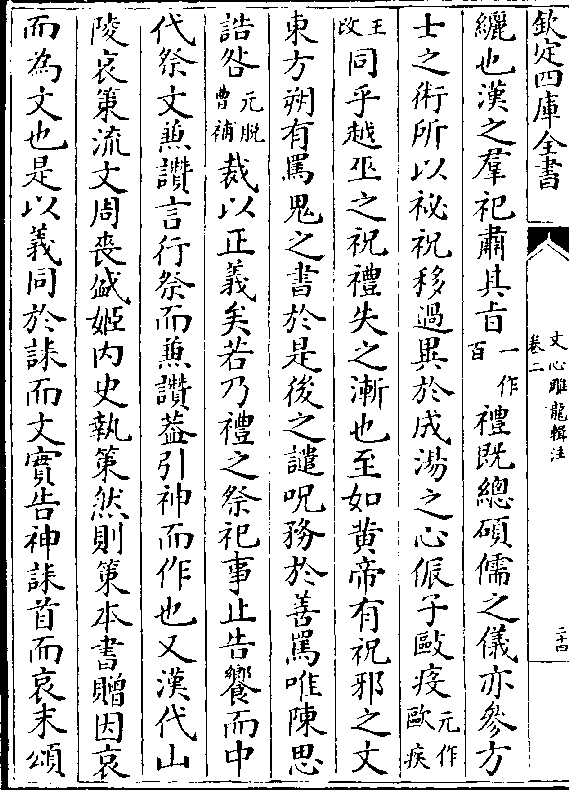 欽定四庫全書
文心雕龍輯注
卷二
二十四
纚也漢之羣祀肅其㫖一作百禮既總碩儒之儀亦參方
士之術所以祕祝移過異於成湯之心侲子毆疫元作歐疾
王改同乎越巫之祝禮失之漸也至如黄帝有祝邪之文
東方朔有罵鬼之書於是後之譴呪務於善罵唯陳思
誥咎元脱曹補裁以正義矣若乃禮之祭祀事止告饗而中
代祭文兼讚言行祭而兼讚葢引神而作也又漢代山
陵哀策流文周喪盛姬内史執策然則策本書贈因哀
而為文也是以義同於誄而文實告神誄首而哀末頌